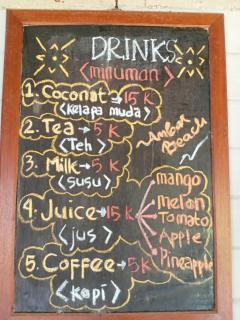 DRINKS
<minuman>
1. Coconut → 15 K
<kelapa muda>
2. Tea → 5 K
<Teh>
3. Milk → 5 K
<susu>
~Ambok
Beach~
4. Juice → 15 K
<jus>
mango
melon
Tomato
Apple
Pineapple
5. Coffee → 5K
<kopi>